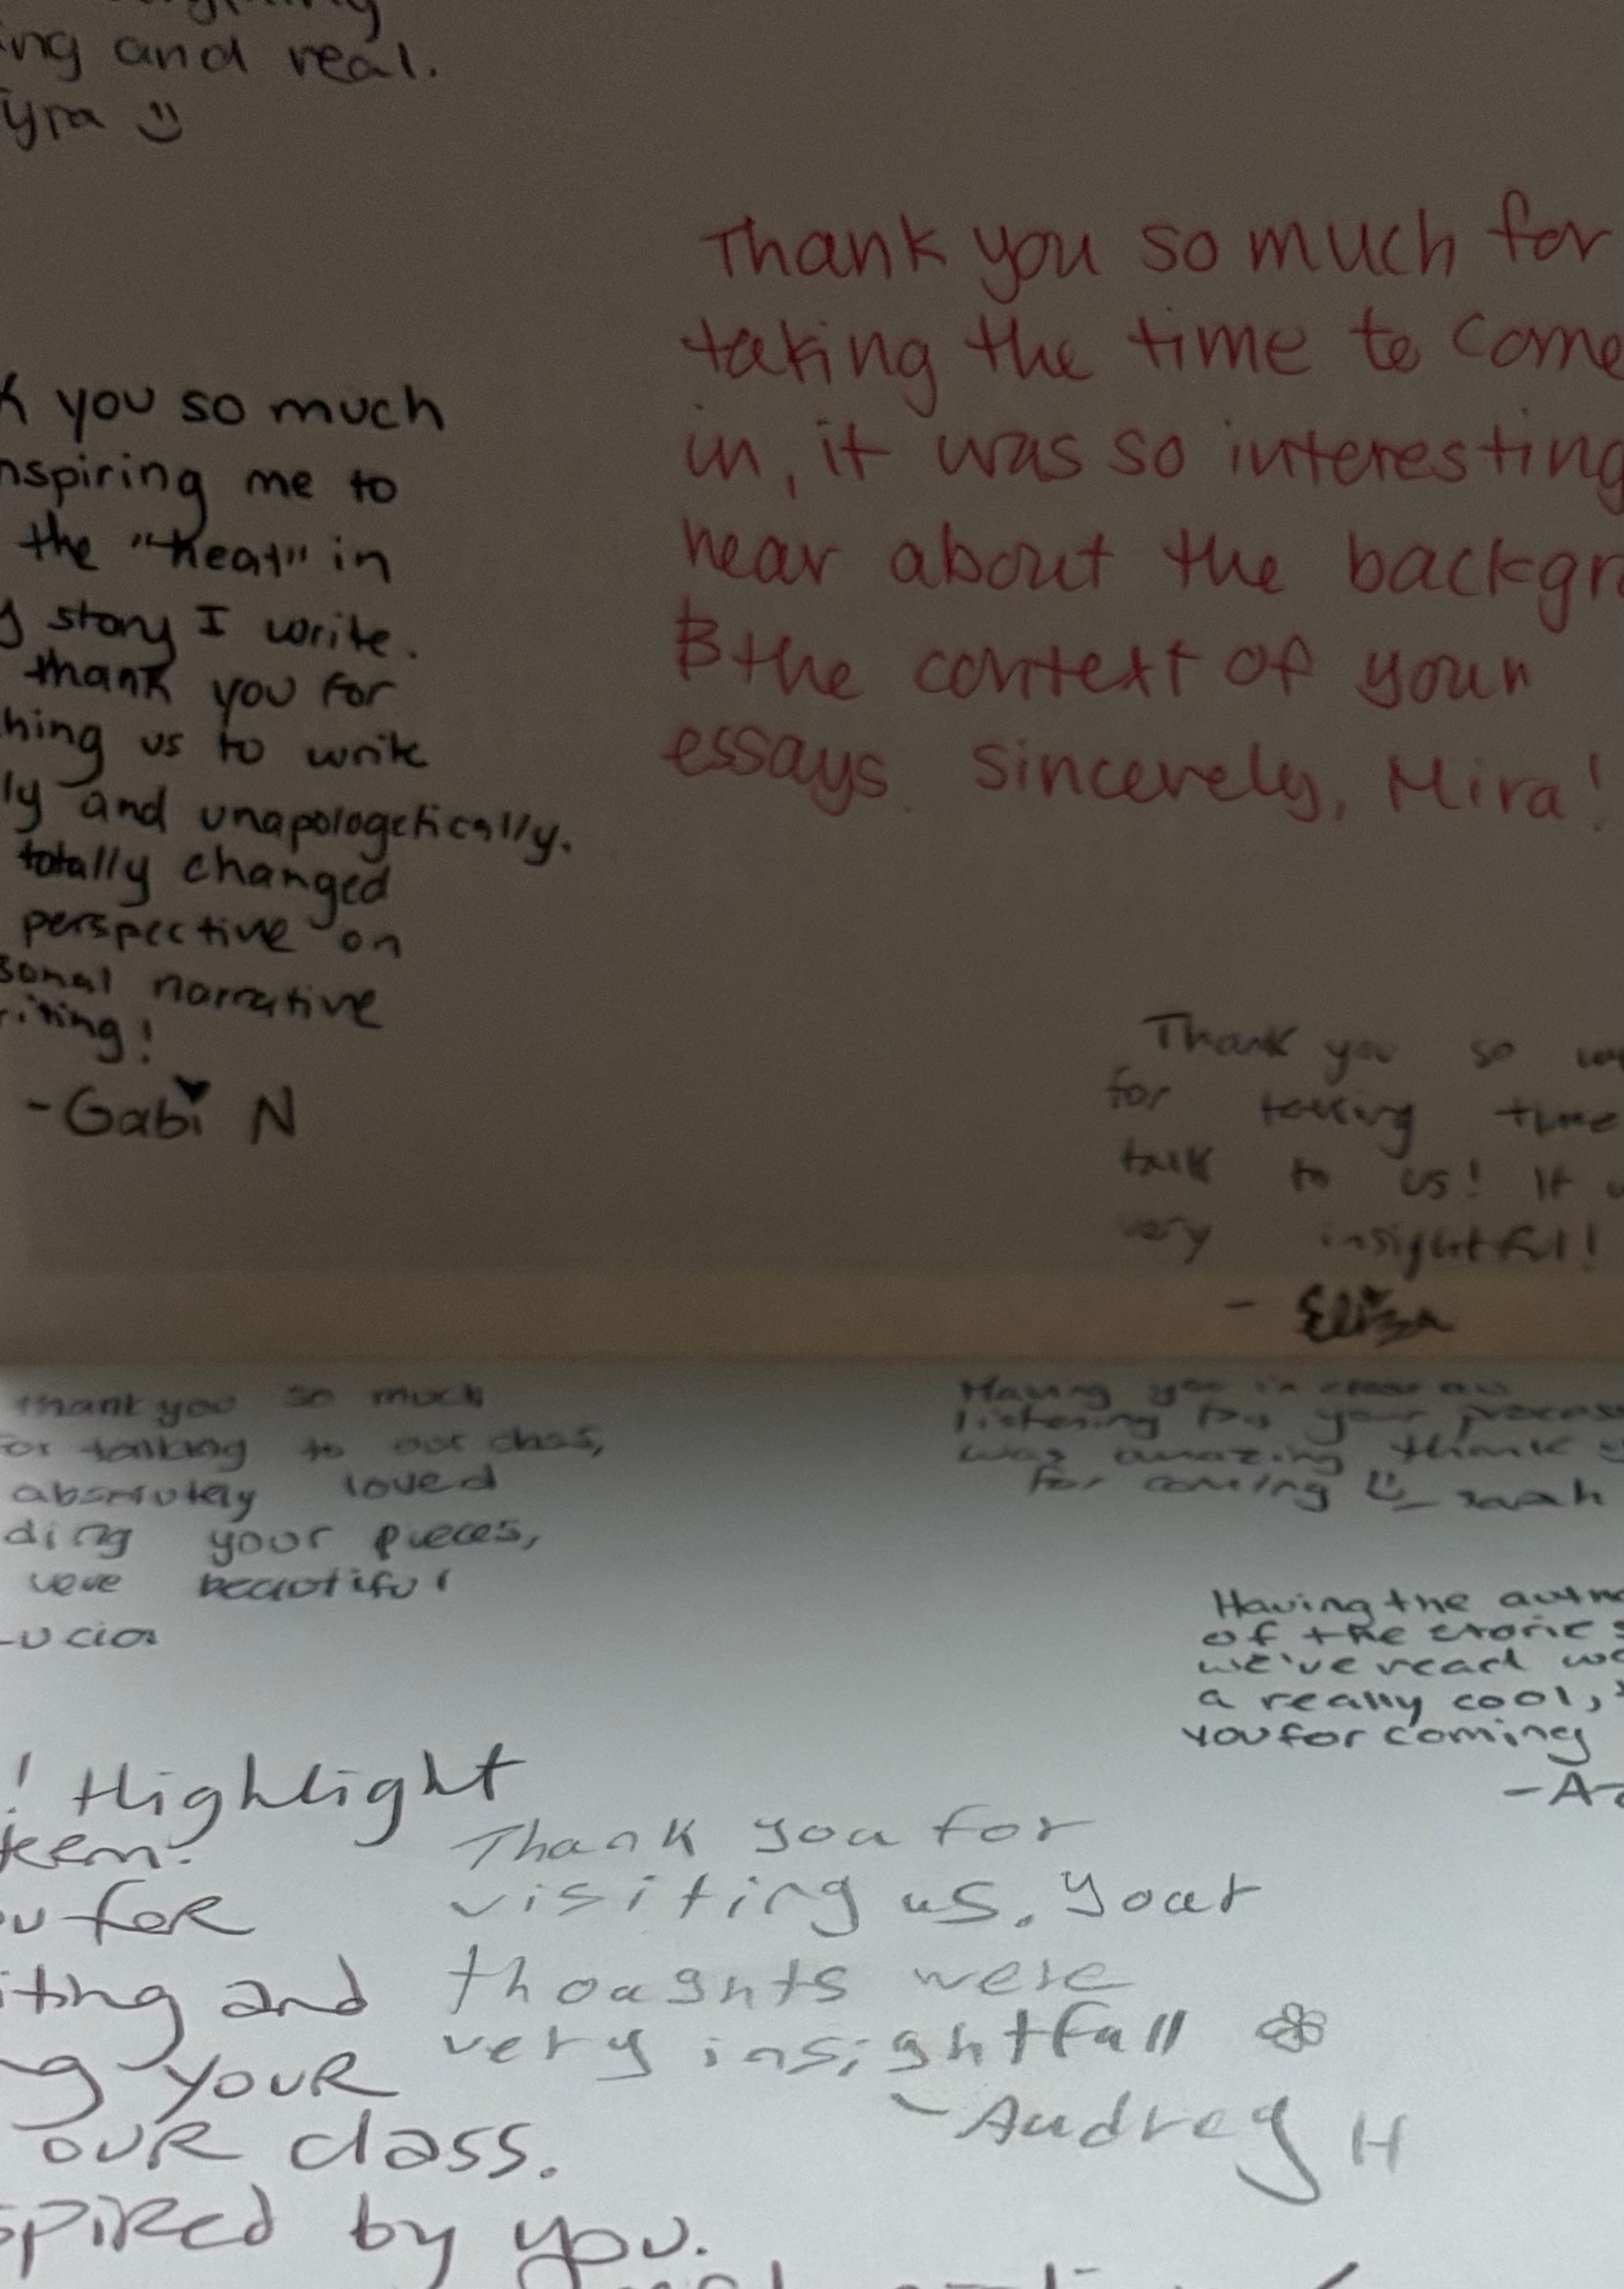 ing and real.
Tyra
Thank you so much for
taking the time to come
in, it was so interesting
hear about the backgr
the context of your
essays. Sincerely, Mira!
k you so much
nspiring me to
the "heat" in
y story I write.
thank you for
hing us to write
ly and unapologetically.
totally changed
perspective on
sonal narrative
riting!
-Gabi N
Thank you so
for taking time
talk to us! It
very insightful!
- Eliza
Thank you so much
for talking to our class,
absolutely loved
ding your pieces,
were beautiful
Lucia
Having you in class
listening to your process
was amazing thank
for coming
Having the auth
of the stories
we've read
a really cool,
you for coming
! Highlight
u for
iting and
ng your
our class.
spired by you.
Thank you for
visiting us. Your
thoughts were
very insightfull
-Audrey H